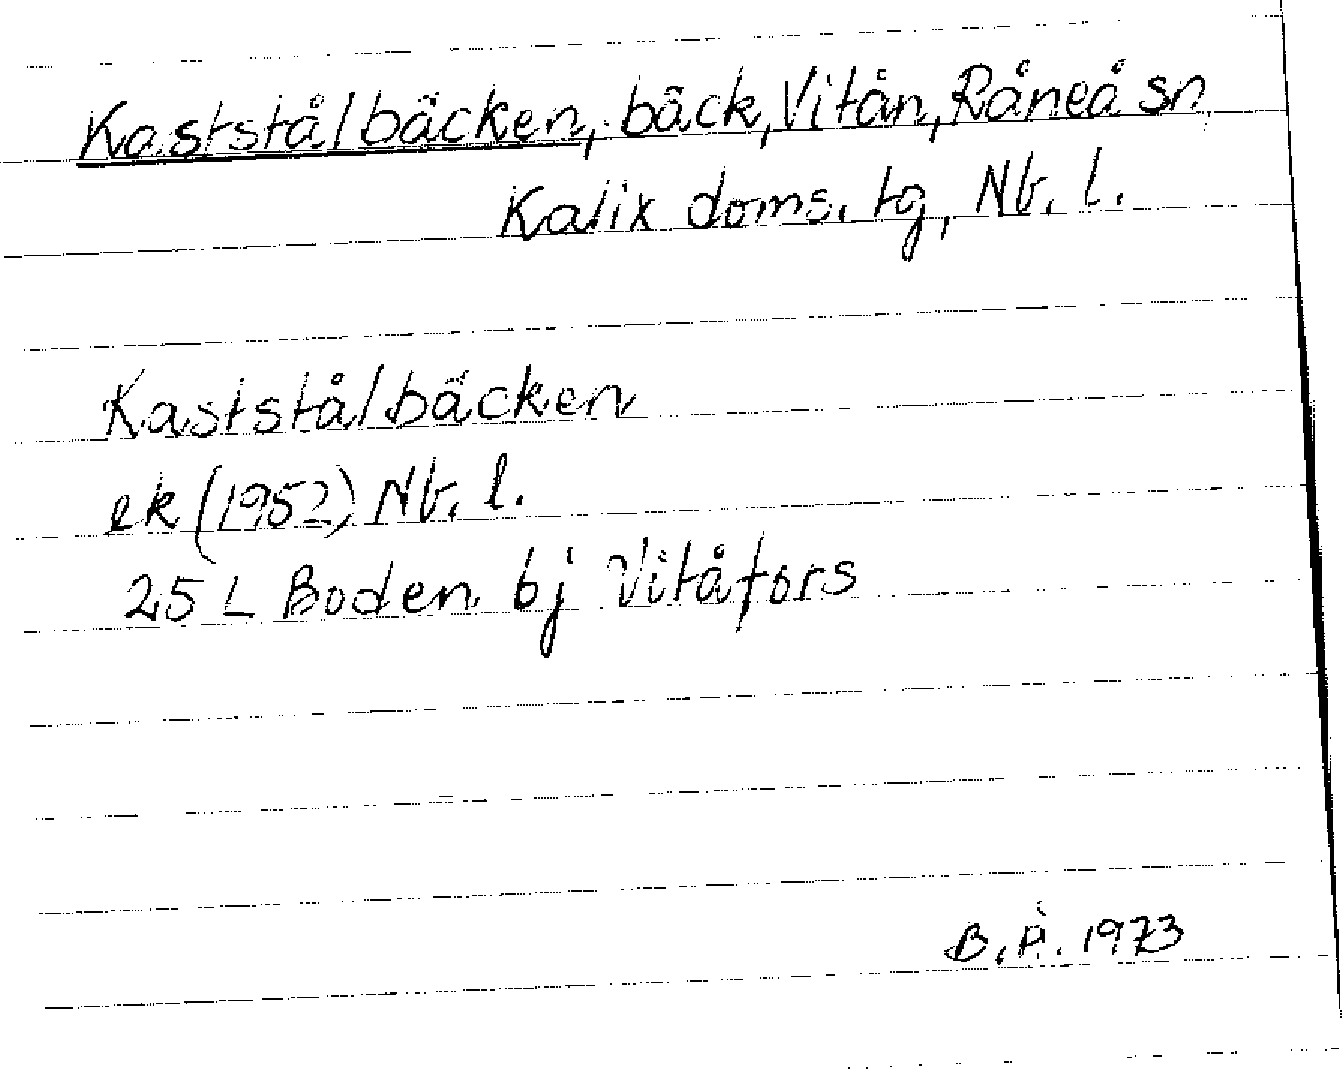 Kaststålbäcken, bäck, Vitån, Råneå sn
Kalix doms. tg, Nb. l.
Kaststålbäcken
ek (1952) Nb. l.
25 L Boden bj Vitåfors
B. Å. 1973